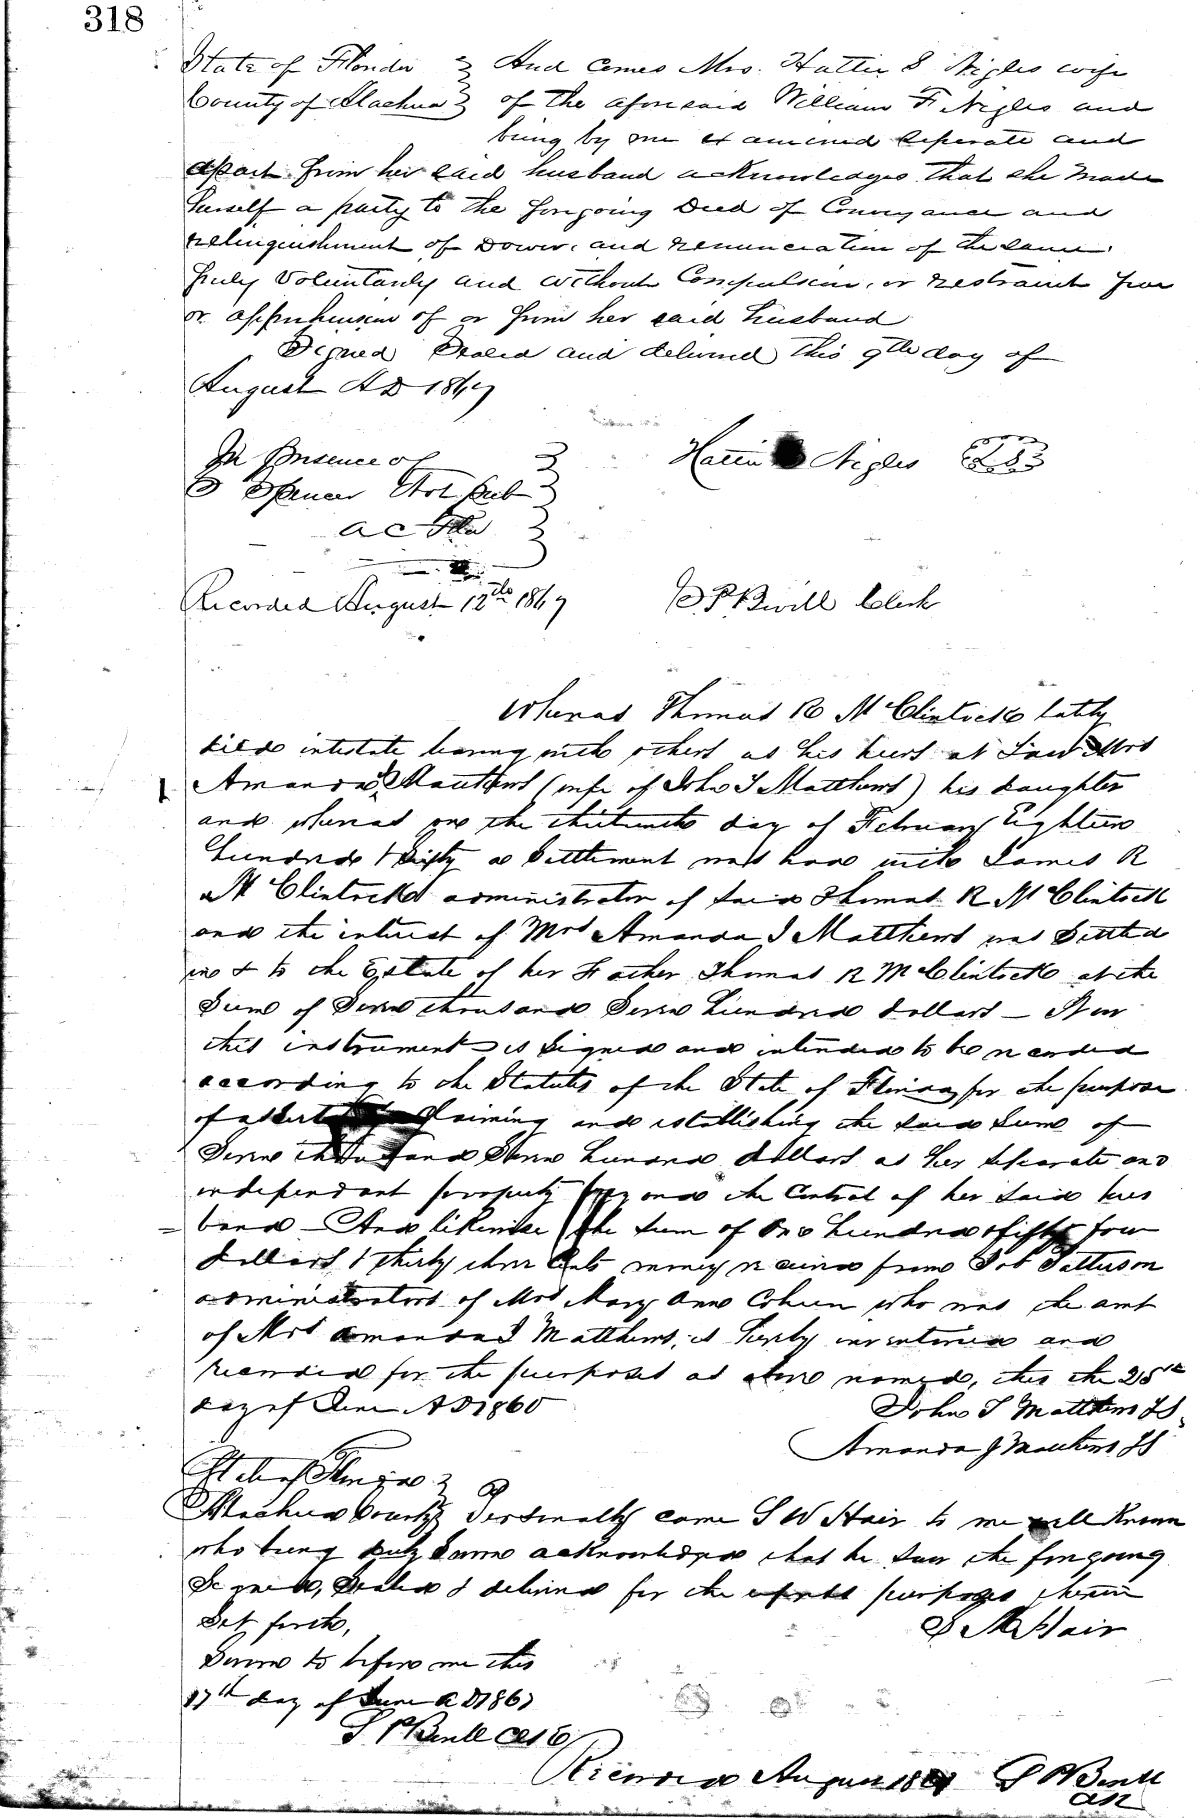 318
State of Florida } And comes Mrs. Hattie S Nigles wife
County of Alachua } of the aforesaid William F Nigles and
being by me examined seperate and
apart from her said husband acknowledges that she made
herself a party to the foregoing Deed of Conveyance and
relinquishment of Dower, and renunciation of the same
freely Voluntarily and without Compulsion, or restraint fear
or apprehension of or from her said husband
Signed Sealed and delivered this 9th day of
August AD 1867
In presence of } Hattie Nigles LS
Spencer Not Pub }
A C Fla }
Recorded August 12th 1867 S P Bevill Clerk
Whereas Thomas R McClintock lately
died intestate leaving with others as his heirs at Law Mrs
Amanda J Matthews (wife of John S Matthews) his daughter
and whereas on the thirteenth day of February Eighteen
hundred & sixty a Settlement was had with James R
McClintock administrator of said Thomas R McClintock
and the interest of Mrs Amanda J Matthews was Settled
in & to the Estate of her Father Thomas R McClintock at the
Sum of Seven thousand Seven hundred dollars — Now
this instrument is signed and intended to be recorded
according to the Statutes of the State of Florida for the purpose
of claiming and establishing the said Sum of
Seven thousand Seven hundred dollars as her separate and
independant property beyond the Control of her said hus
band — And likewise the sum of One hundred & fifty four
dollars & thirty three Cents money received from Job Patterson
administrators of Mrs Mary Ann Cohen who was the aunt
of Mrs Amanda J Matthews, is hereby inventoried and
recorded for the purposes as above named, this the 25th
day of June AD 1860 John S Matthews LS
Amanda J Matthews LS
State of Florida }
Alachua County } Personally came S W Hair to me well Known
who being duly Sworn acknowledged that he saw the foregoing
Signed, Sealed & delivered for the purposes therein
Set forth, S M Hair
Sworn to before me this
17th day of June AD 1867
S P Bevill Clk
Recorded August 1867 S P Bevill
Clk